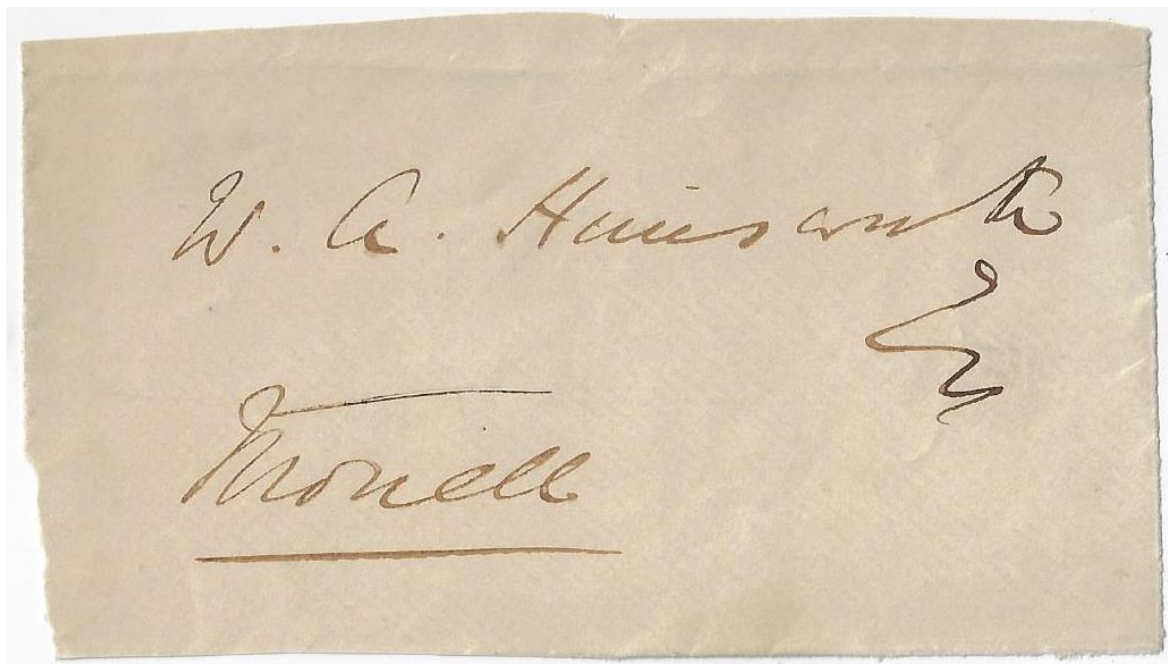 W. A. Hainsworth
Esq
Monell